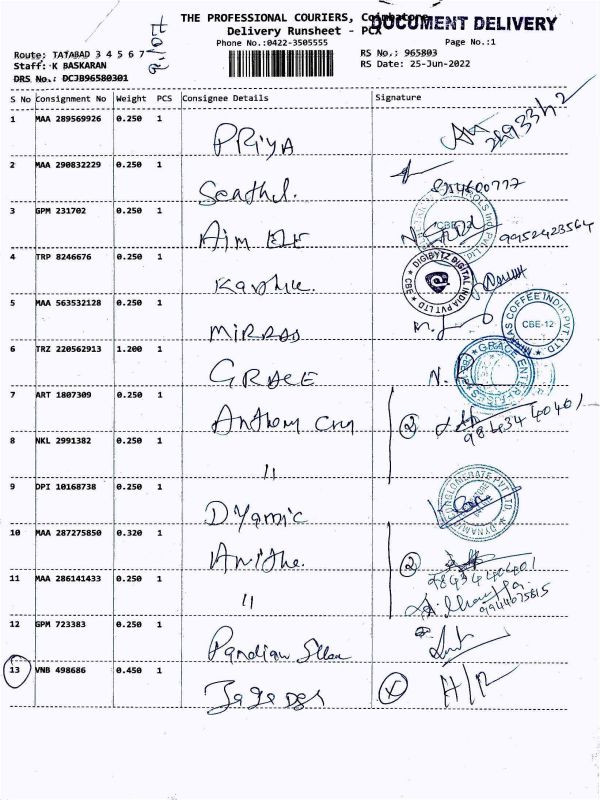 THE PROFESSIONAL COURIERS, Coimbatore
DOCUMENT DELIVERY
Delivery Runsheet - PCX
Phone No.:0422-3505555
Page No.:1
Route: TATABAD 3 4 5 6 7
RS No.: 965803
Staff: K BASKARAN
RS Date: 25-Jun-2022
DRS No.: DCJB96580301
S No Consignment No Weight PCS Consignee Details Signature
1 MAA 289569926 0.250 1 PRIYA
2 MAA 290832229 0.250 1 Senthil.
3 GPM 231702 0.250 1 Aim ELE 9952423564
4 TRP 8246676 0.250 1
DIGIBYTZ DIGITAL INDIA PVT LTD CBE
5 MAA 563532128 0.250 1 MIRRAS
COFFEE INDIA PVT LTD CBE-12
6 TRZ 220562913 1.200 1 GRACE
GRACE ENTERPRISES
7 ART 1807309 0.250 1 Anthony 2 9843440401
8 NKL 2991382 0.250 1 11
9 DPI 10168738 0.250 1 Dyamic
10 MAA 287275850 0.320 1 Anitha. 2 9843440401
11 MAA 286141433 0.250 1 11 9944675815
12 GPM 723383 0.250 1 Pandian
13 VNB 498686 0.450 1 X